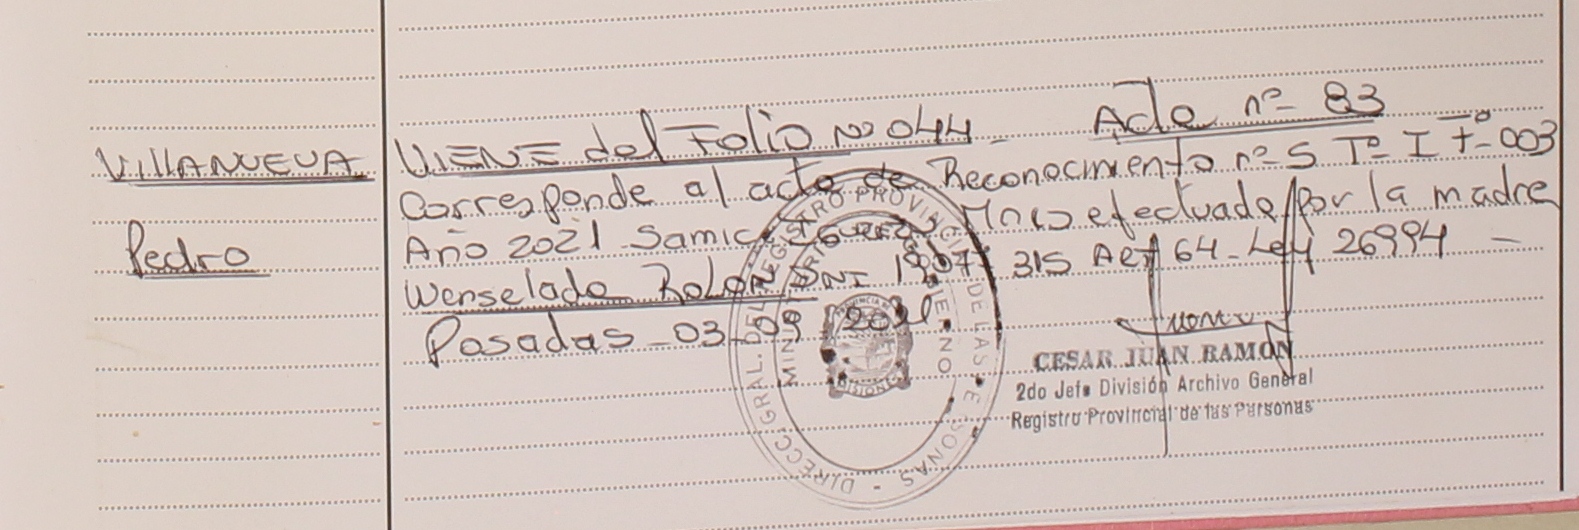 VILLANUEVA
Pedro
VIENE del Folio Nº 044 - Acta nº- 83
Corresponde al acta de Reconocimiento nº- 5 Tº I Fº- 003
Año 2021 - Samic Mnes efectuado por la madre
Wenselada DNI 315 Art 64 - Ley 26994 -
Posadas - 03 - 09
CESAR JUAN RAMON
2do Jefe División Archivo General
Registro Provincial de las Personas
DIRECC. GRAL. DEL REGISTRO PROVINCIAL DE LAS PERSONAS
MINISTERIO GOBIERNO
PROVINCIA
MISIONES